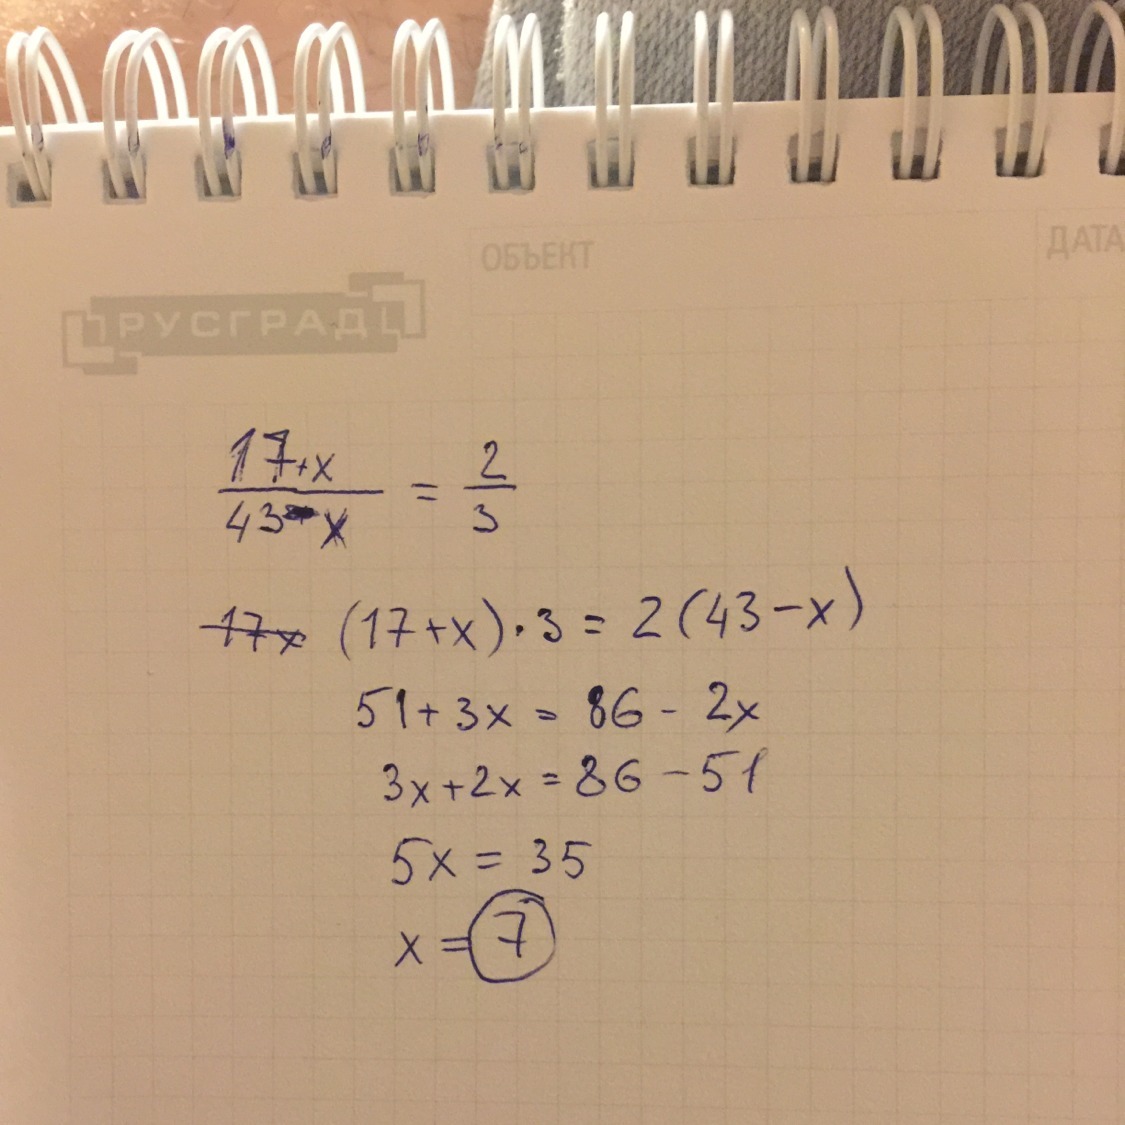 ОБЪЕКТ
ДАТА
РУСГРАД
17+x / 43-x = 2/3
17x (17+x)·3 = 2(43-x)
51+3x = 86-2x
3x+2x=86-51
5x = 35
x = 7